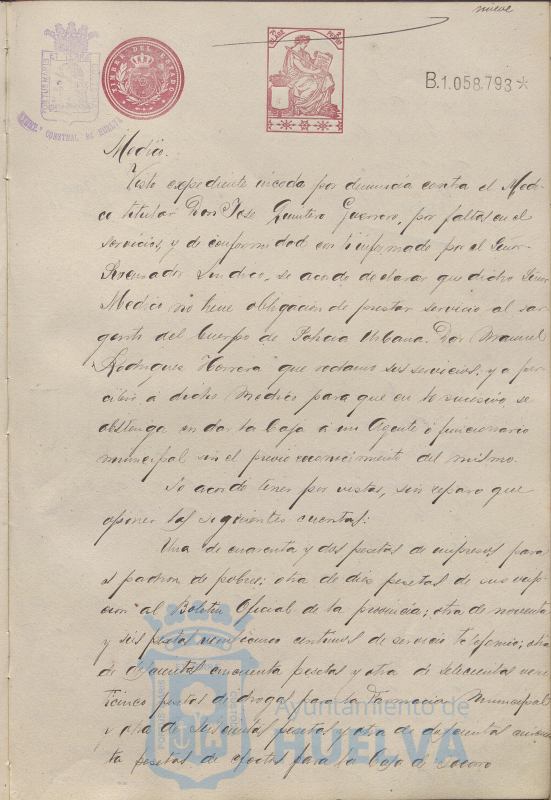 nueve
TIMBRE DEL ESTADO
B.1.058.793*
Medico.
Visto expediente incoado por denuncia contra el Medi-
co titular Don Jose Quintero Guerrero, por faltas en el
servicios, y de conformidad con lo informado por el Señor
Procurador Sindico, se acordo declarar que dicho Señor
Medico no tiene obligacion de prestar servicio al sar-
gento del Cuerpo de Policia Urbana. Don Manuel
Rodriguez Herrera que reclamo sus servicios, y aper-
cibir á dicho Medico para que en lo sucesivo se
abstenga en dar la baja á un Agente ó funcionario
municipal sin el previo reconocimiento del mismo.
Se acordo tener por vistas, sin reparo que
oponer las siguientes cuentas:
Una de cuarenta y dos pesetas de impresos para
el padron de pobres; otra de diez pesetas de suscrip-
cion al Boletin Oficial de la provincia; otra de noventa
y seis pesetas veinticinco centimos de servicio telefonico; otra
de doscientas cincuenta pesetas y otra de setecientas vein-
ticinco pesetas de drogas para la Farmacia Municipal
y otra de seiscientas pesetas y otra de doscientas cincuen-
ta pesetas de efectos para la Casa de Socorro
Ayuntamiento de
HUELVA